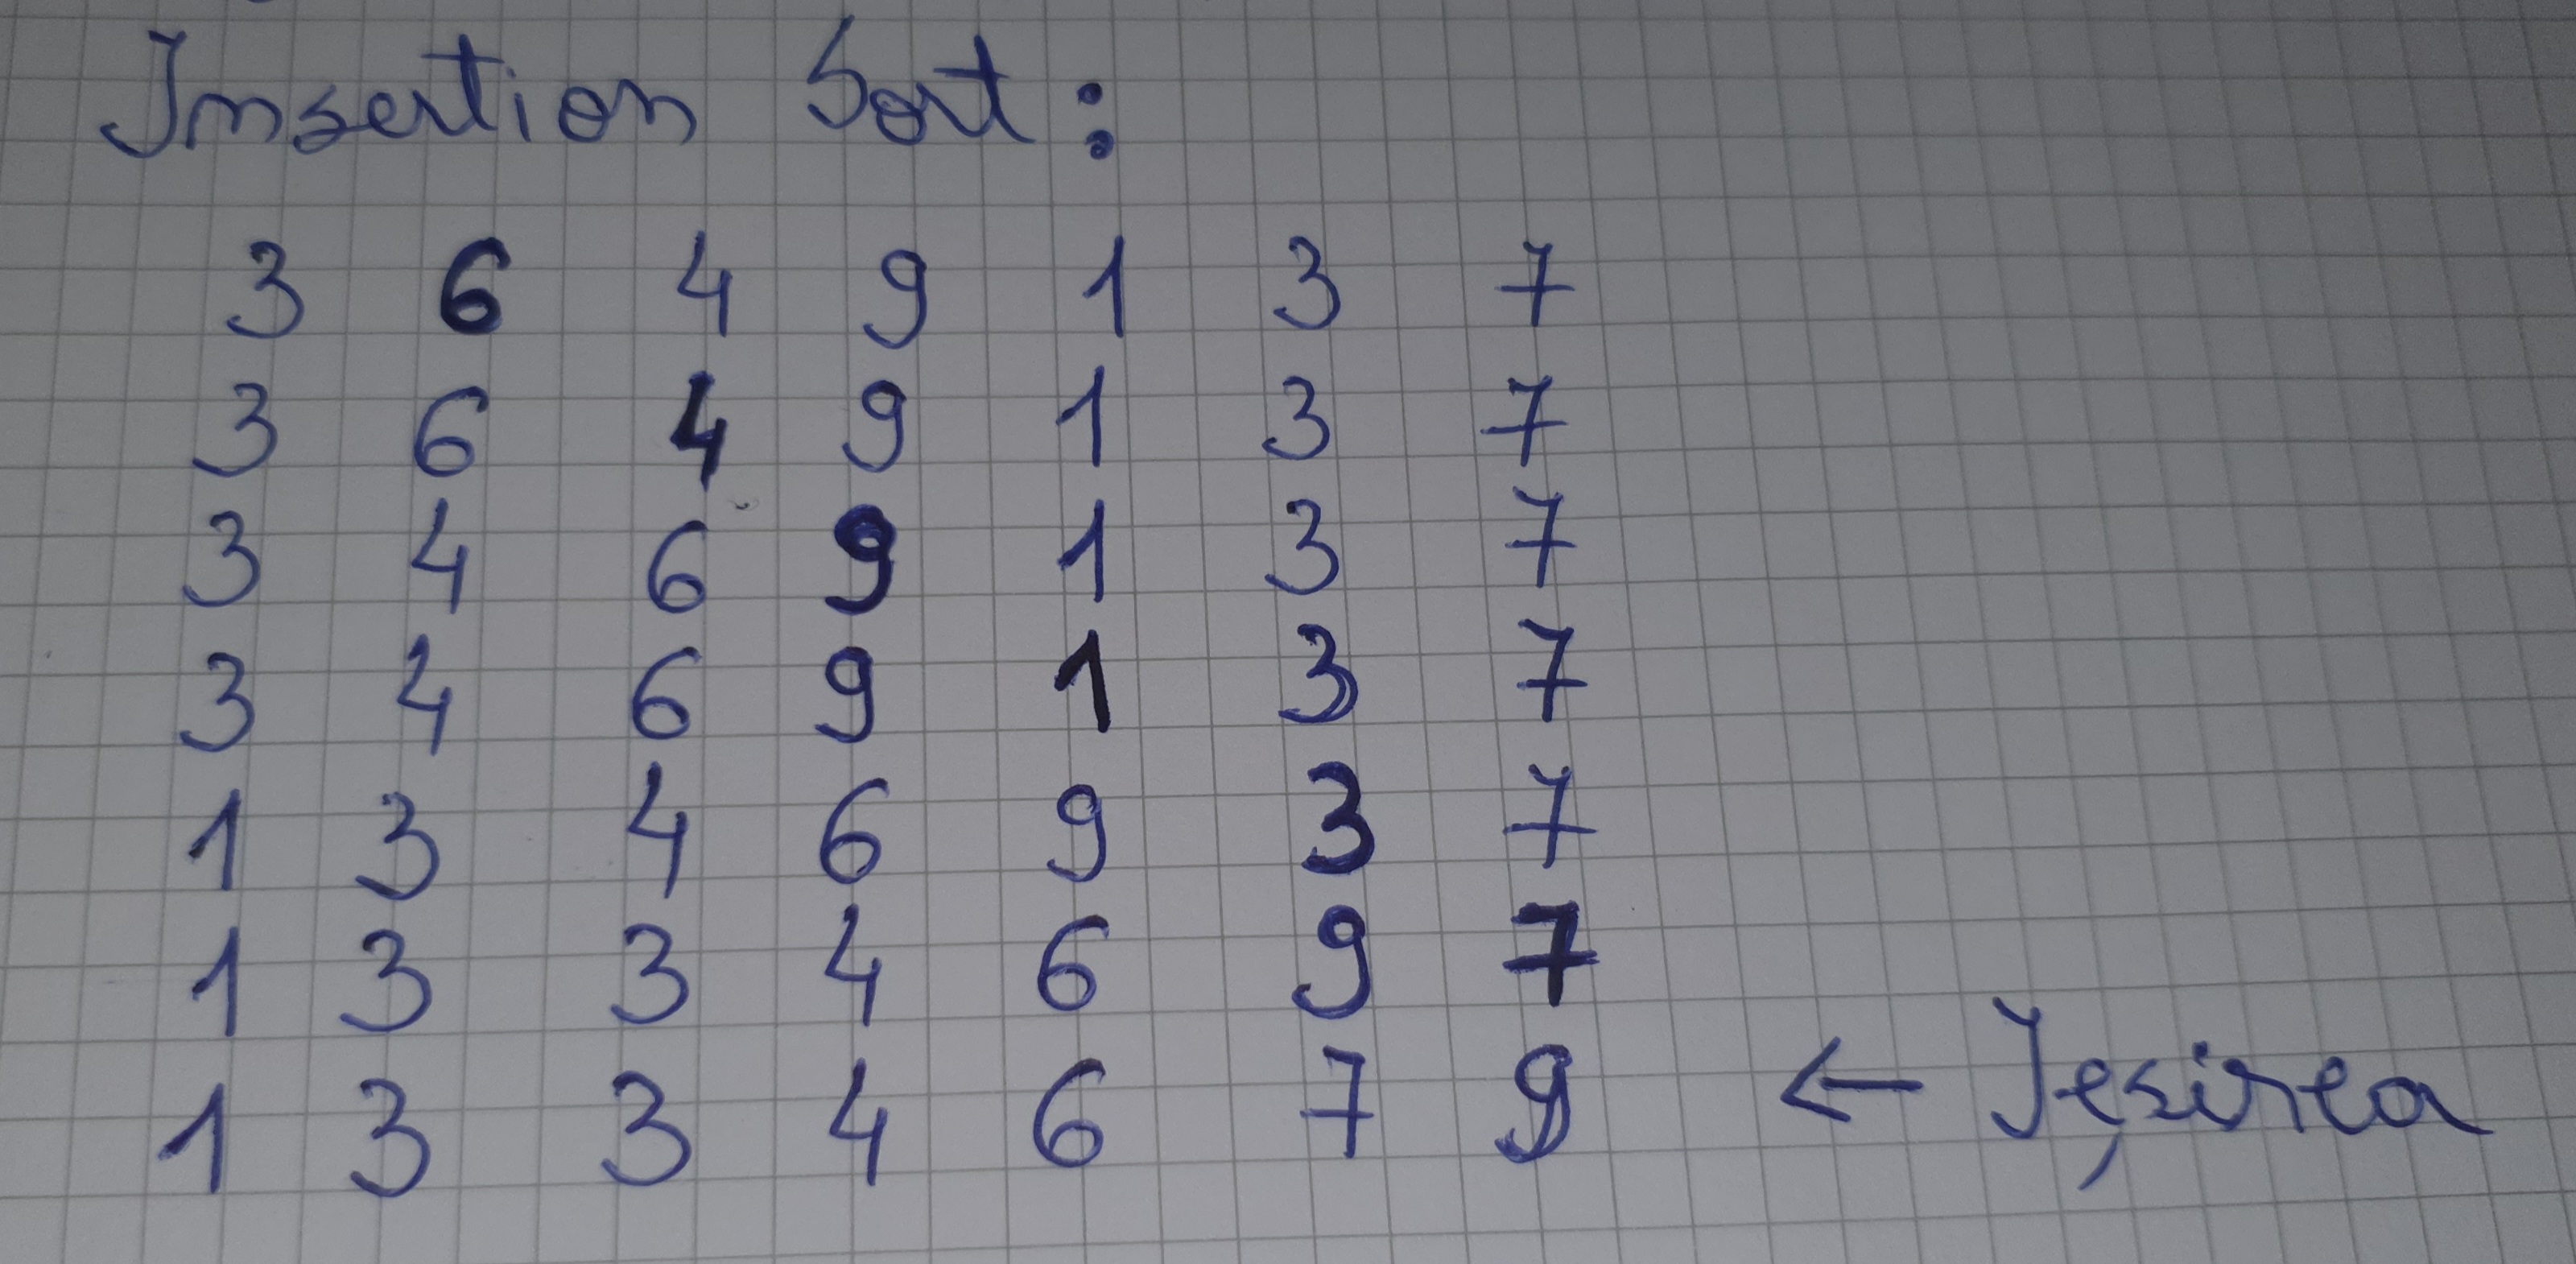 Insertion Sort:
3 6 4 9 1 3 7
3 6 4 9 1 3 7
3 4 6 9 1 3 7
3 4 6 9 1 3 7
1 3 4 6 9 3 7
1 3 3 4 6 9 7
1 3 3 4 6 7 9 ← Ieșirea